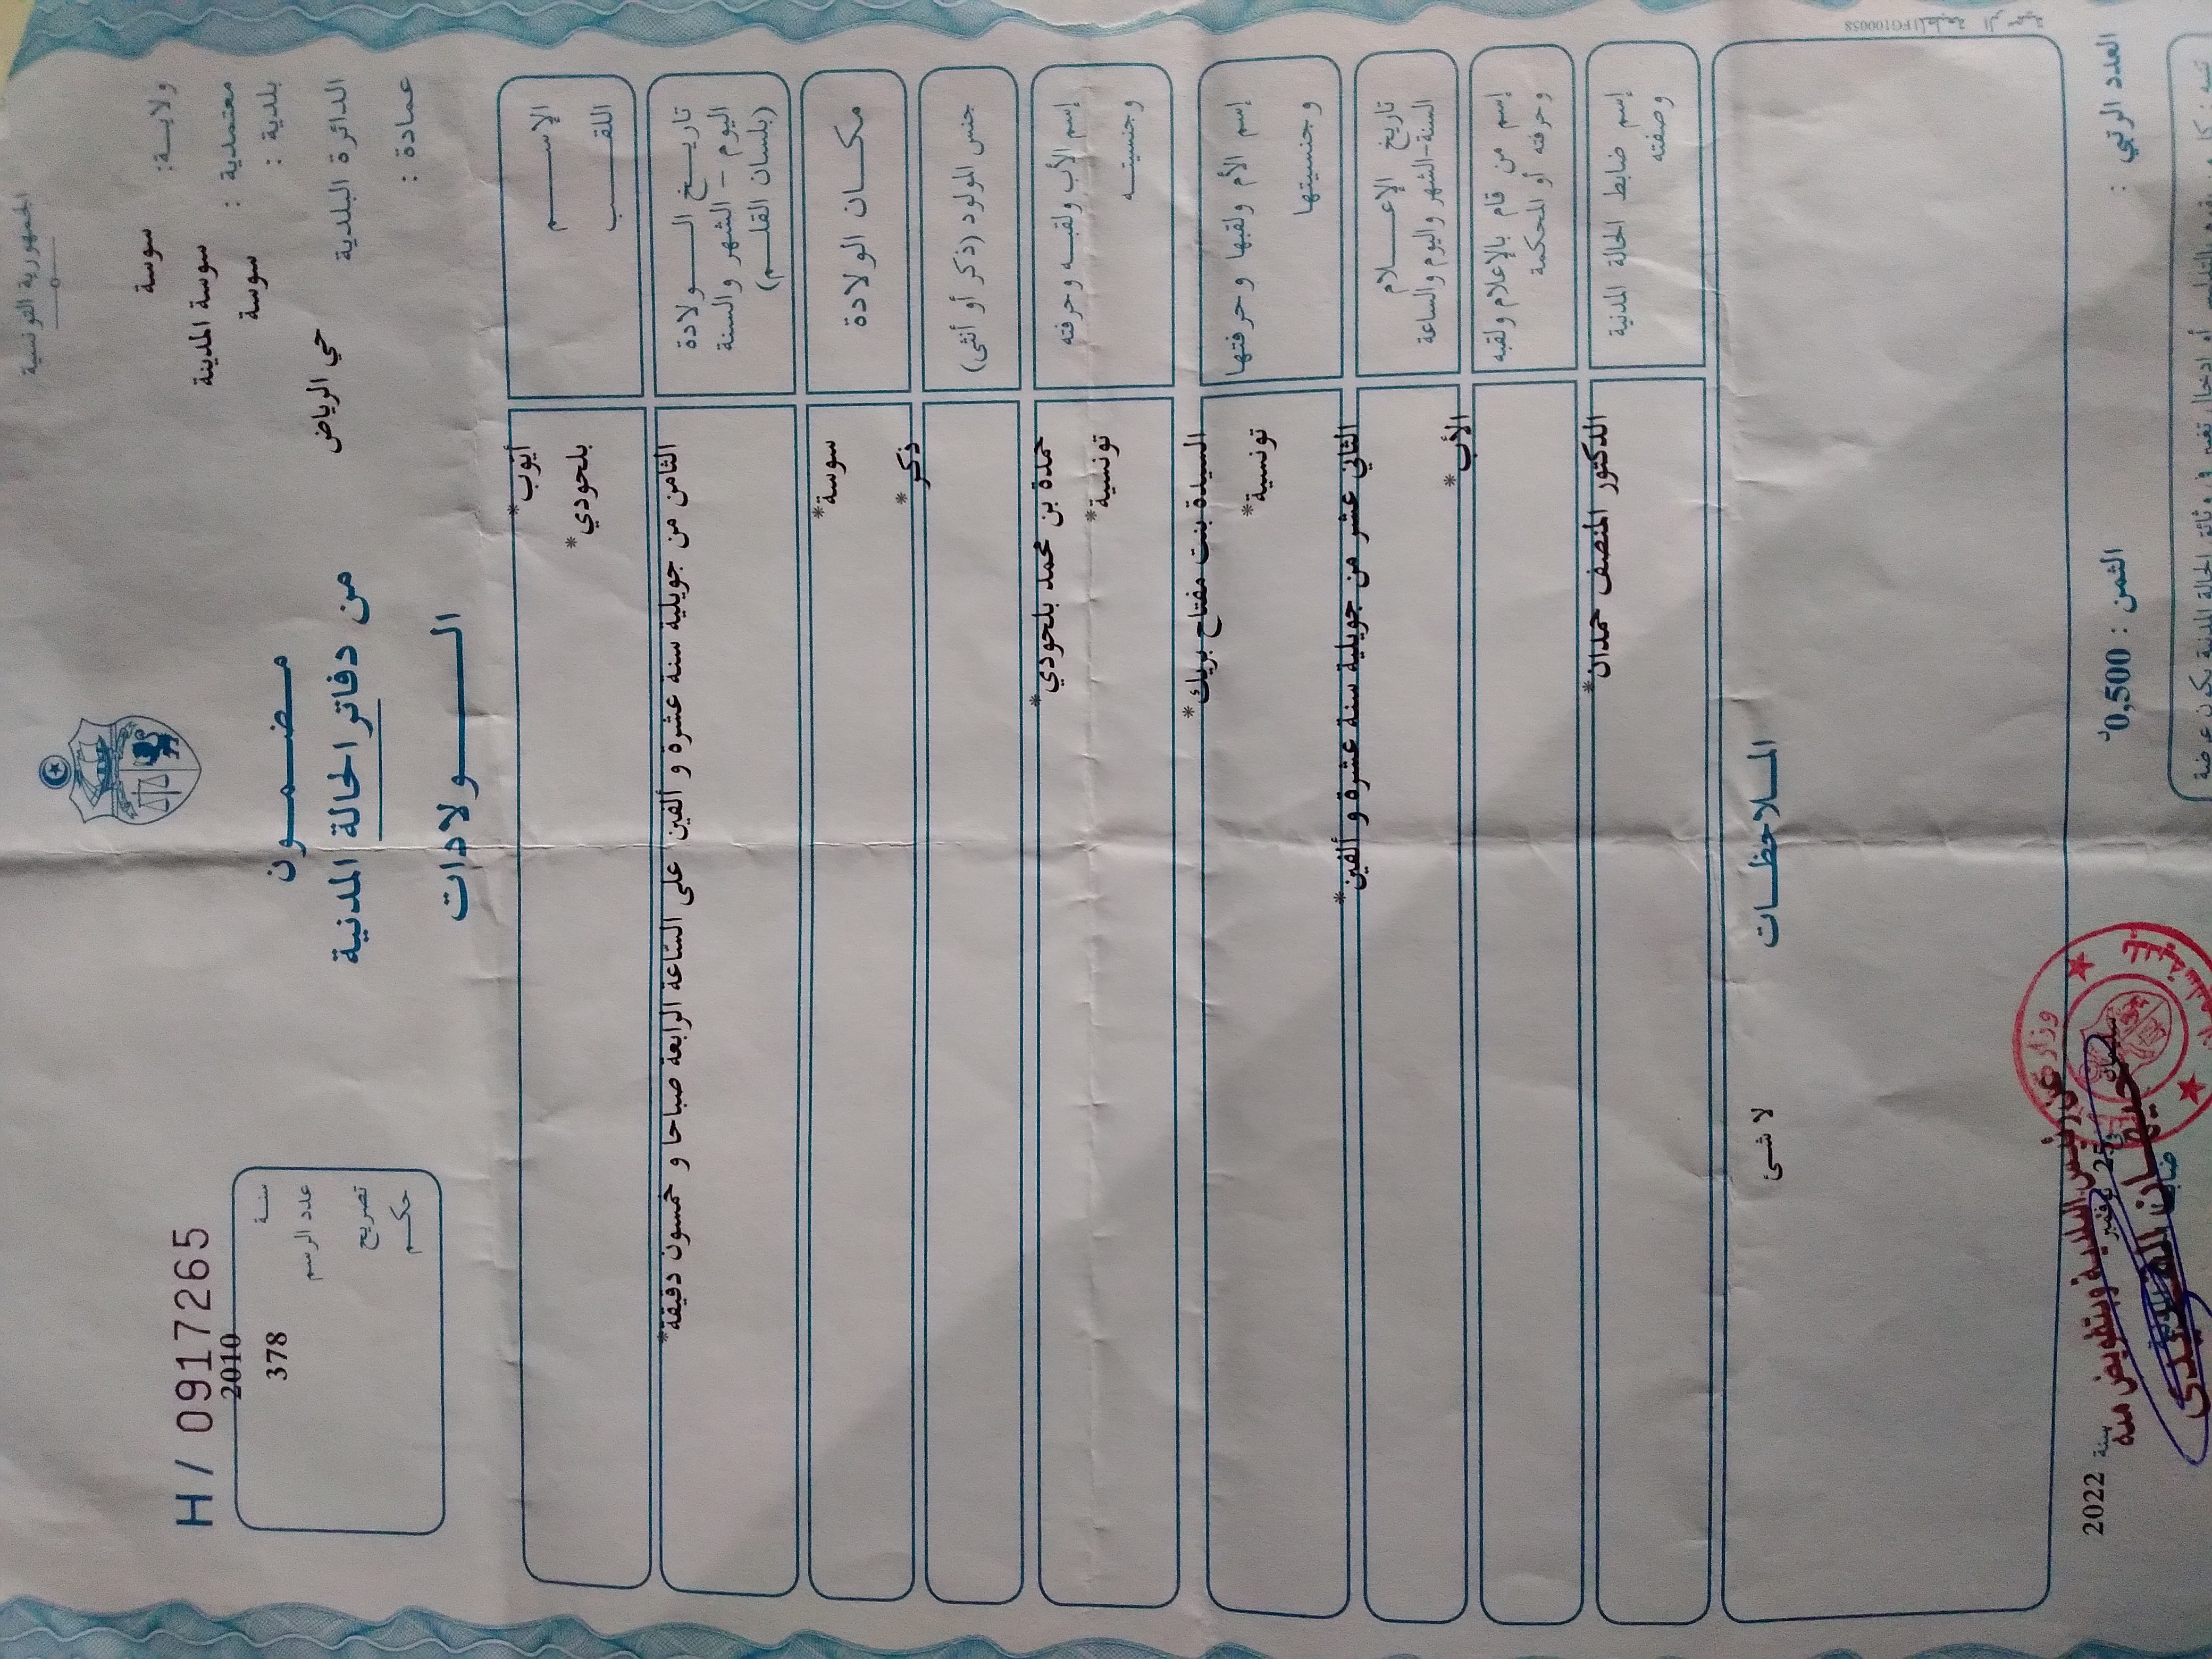 الجمهورية التونسية
ولاية: سوسة
معتمدية : سوسة المدينة
بلدية : سوسة
الدائرة البلدية حي الرياض
عمادة :
مضمون
من دفاتر الحالة المدنية
الولادات
H / 0917265
سنة 2010
عدد الرسم 378
تصريح
حكم
الإسم أيّوب*
اللقب بلحودي*
تاريخ الولادة
اليوم - الشهر والسنة
(بلسان القلم)
الثامن من جويلية سنة عشرة و ألفين على السّاعة الرابعة صباحا و خمسون دقيقة*
مكان الولادة سوسة*
جنس المولود (ذكر أو أنثى) ذكر*
إسم الأب ولقبه وحرفته حمدة بن محمد بلحودي*
وجنسيته تونسية*
إسم الأم ولقبها وحرفتها السيدة بنت مفتاح بريك*
وجنسيتها تونسية*
تاريخ الإعلام
السنة-الشهر واليوم والساعة
الثاني عشر من جويلية سنة عشرة و ألفين*
إسم من قام بالإعلام ولقبه
وحرفته أو المحكمة
الأب*
إسم ضابط الحالة المدنية
وصفته
الدكتور المنصف حمدان*
الملاحظات
لا شئ
المطبعة الرسمية FG100058
العدد الرتبي :
الثمن : 0,500د
25 نوفمبر سنة 2022
عن رئيس البلدية وبتفويض منه